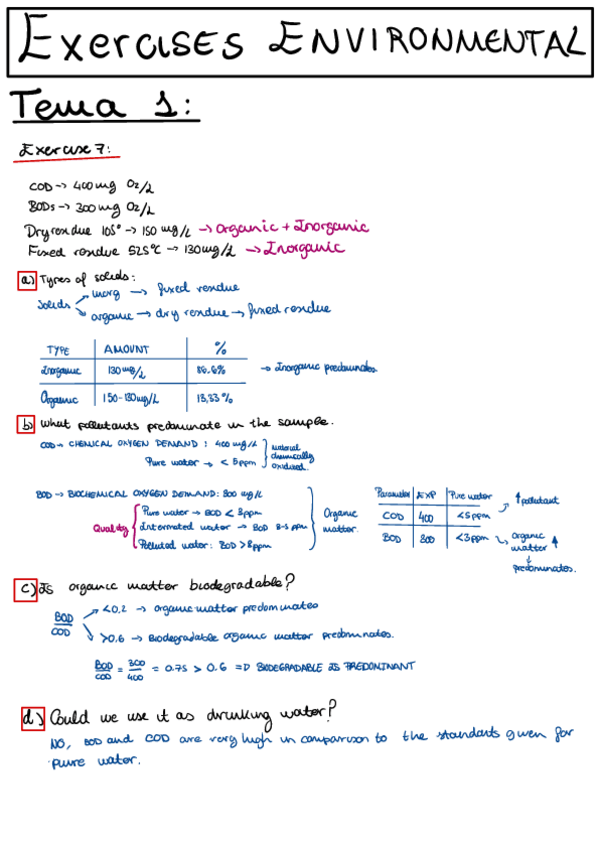 Exercises ENVIRONMENTAL
Tema 1:
Exercise 7:
COD -> 400 mg O2/L
BOD5 -> 300 mg O2/L
Dry residue 105° -> 150 mg/L -> Organic + Inorganic
Fixed residue 525°C -> 130 mg/L -> Inorganic
a) Types of solids:
solids
inorg -> fixed residue
organic -> dry residue -> fixed residue
TYPE AMOUNT %
Inorganic 130 mg/L 86.6% -> Inorganic predominates
Organic 150-130 mg/L 13,33%
b) What pollutants predominate in the sample.
COD -> CHEMICAL OXYGEN DEMAND: 400 mg/L
Pure water -> < 5ppm
material chemically oxidised.
BOD -> BIOCHEMICAL OXYGEN DEMAND: 300 mg/L
Quality
Pure water -> BOD < 3ppm
Intermated water -> BOD 3-5 ppm
Polluted water: BOD > 8ppm
Organic matter.
Parameter EXP Pure water
COD 400 <5ppm
↑ pollutant
BOD 300 <3ppm
Organic matter ↑
predominates.
c) Is organic matter biodegradable?
BOD/COD
<0.2 -> organic matter predominates
>0.6 -> Biodegradable organic matter predominates.
BOD/COD = 300/400 = 0.75 > 0.6 =D BIODEGRADABLE IS PREDOMINANT
d) Could we use it as drinking water?
NO, BOD and COD are very high in comparison to the standarts given for
pure water.